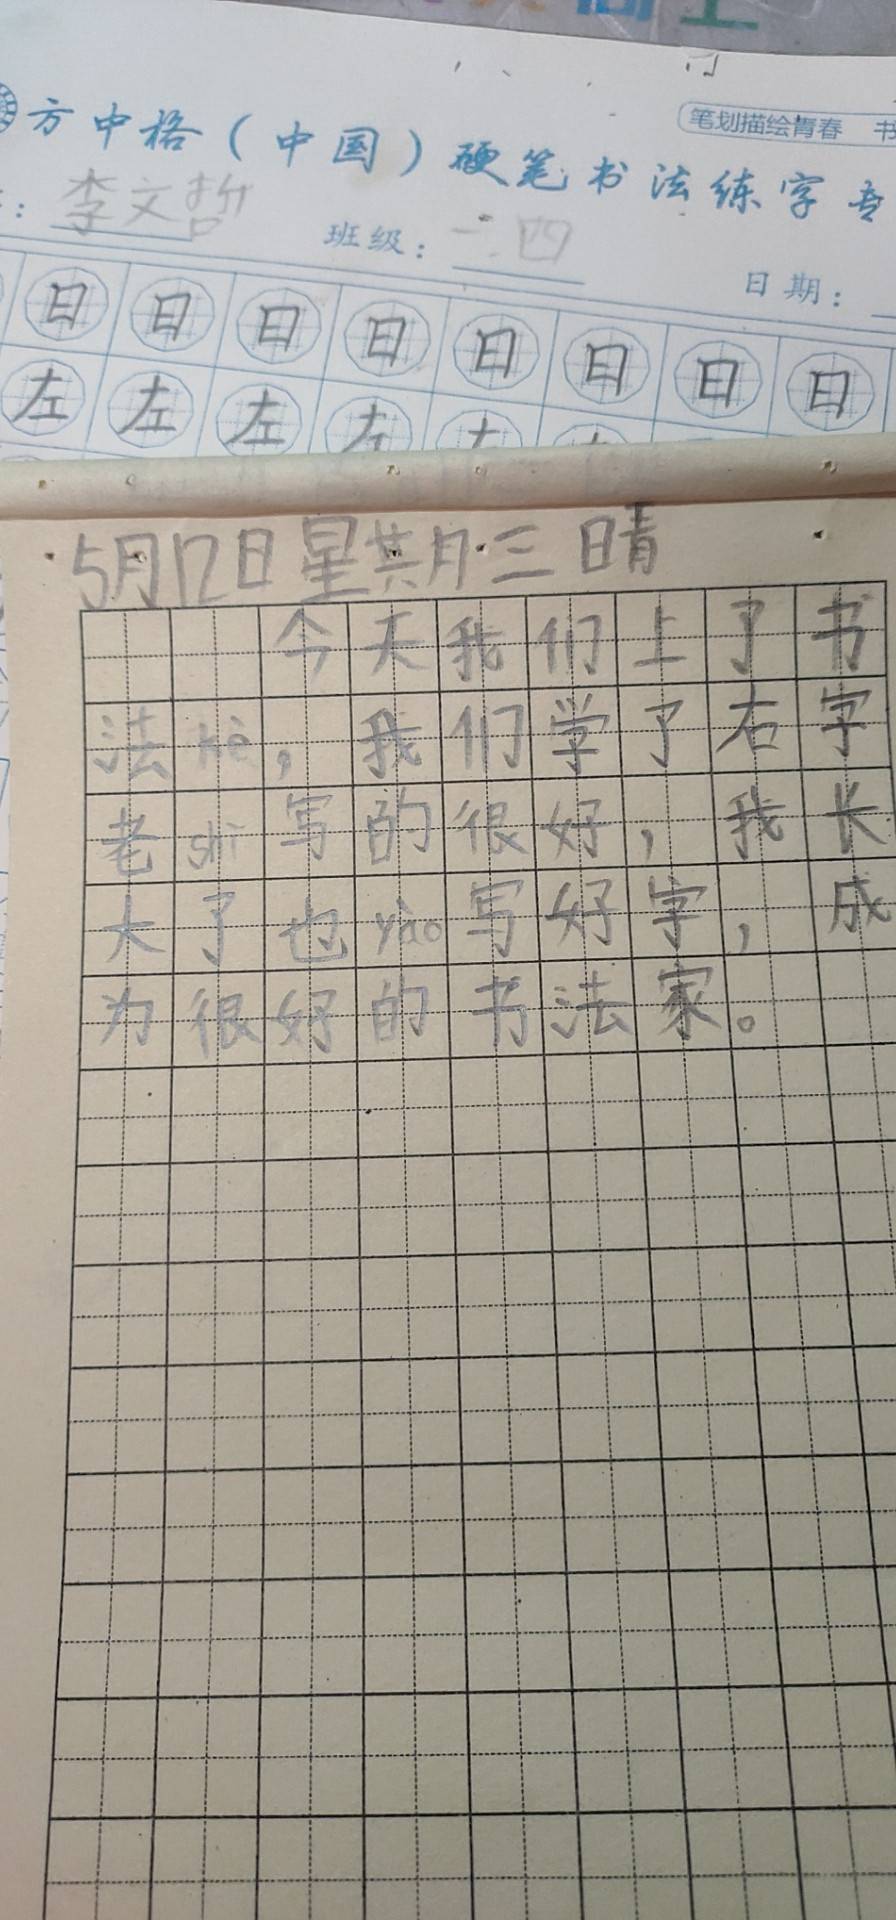 方中格（中国）硬笔书法练字专
笔划描绘青春 书
：李文哲 班级：一.四 日期：
日日日日日日日日
左左左左左
5月12日星期三 晴
今天我们上了书
法kè，我们学了右字
老shī写的很好，我长
大了也yào写好字，成
为很好的书法家。